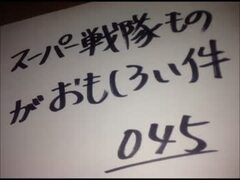 スーパー戦隊もの
がおもしろい件
045